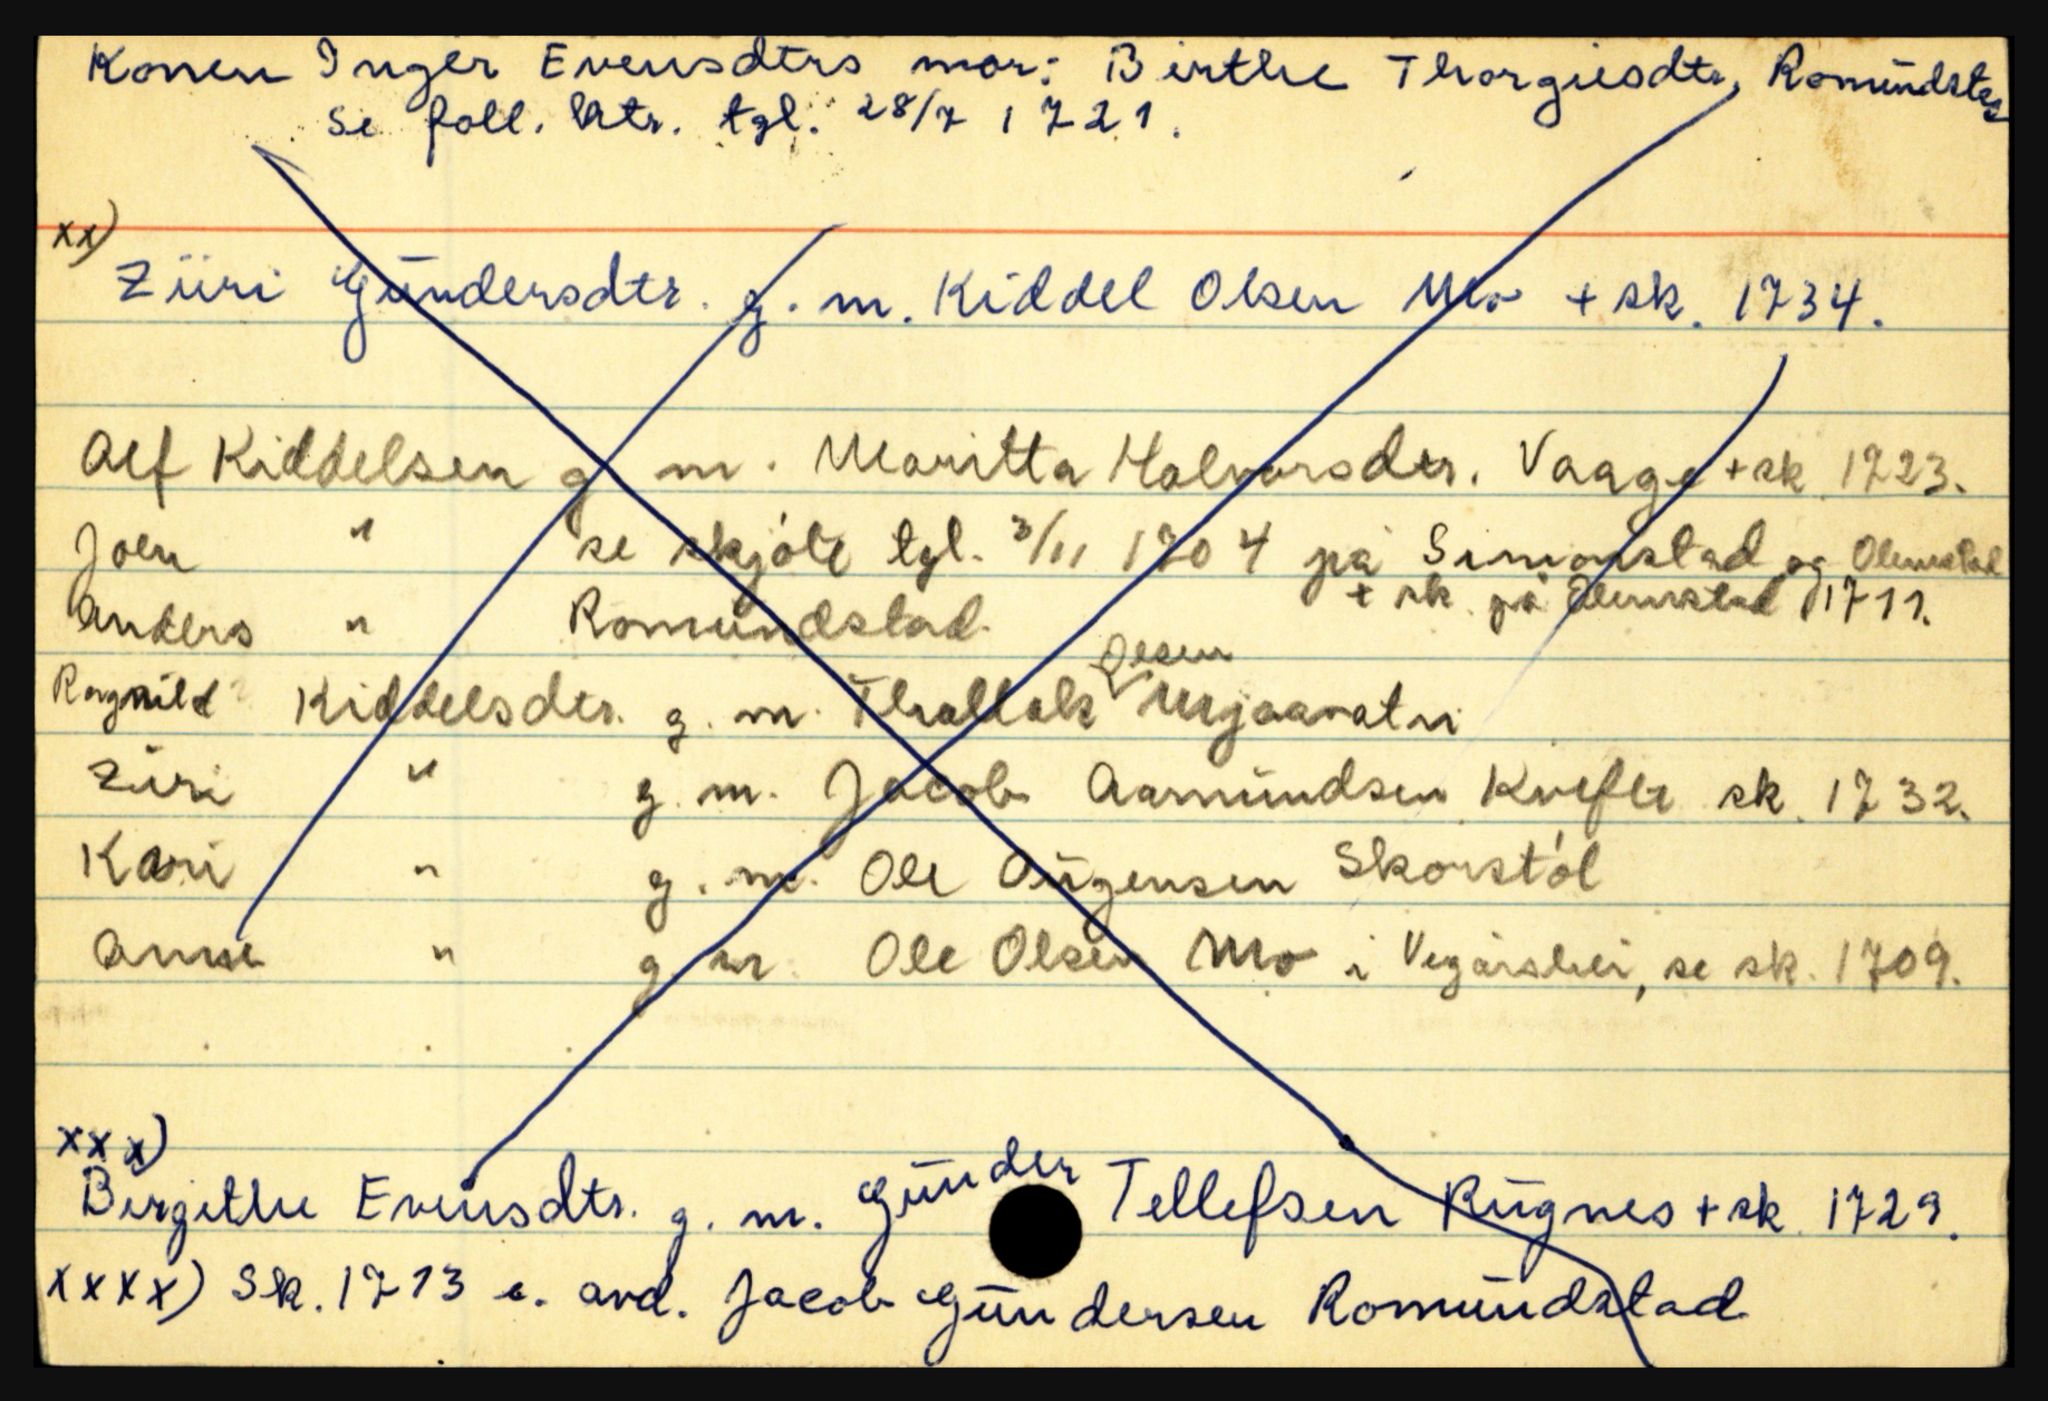 Konen Inger Evensdtrs mor: Birthe Thorgiesdtr, Romündstad
Se foll. Atr. tgl. 28/7 1721.
xx)
Züri Gündersdtr. g. m. Kiddel Olsen Mo + sk. 1734.
Alf Kiddelsen g m. Maritta Halvorsdtr. Vaage + sk. 1723.
Joen " se skjóte tgl. 3/11 1704 på Simonstad og Olimstad
+ sk. på 1711.
Anders " Romündstad.
Olsen
Ragnild Kiddelsdtr. g. m. Thallak Mjaavatn
Züri " g. m. Jacob Aamündsen Kvefte sk. 1732.
Kari " g. m. Ole Aügensen Skorstól
Anne " g. m. Ole Olsen Mo i Vegårshei, se sk. 1709.
xxx)
Birgithe Evensdtr. g. m. Günder Tellefsen Rügnes + sk. 1729.
xxxx) Sk. 1713 e. avd. Jacob Gündersen Romündstad